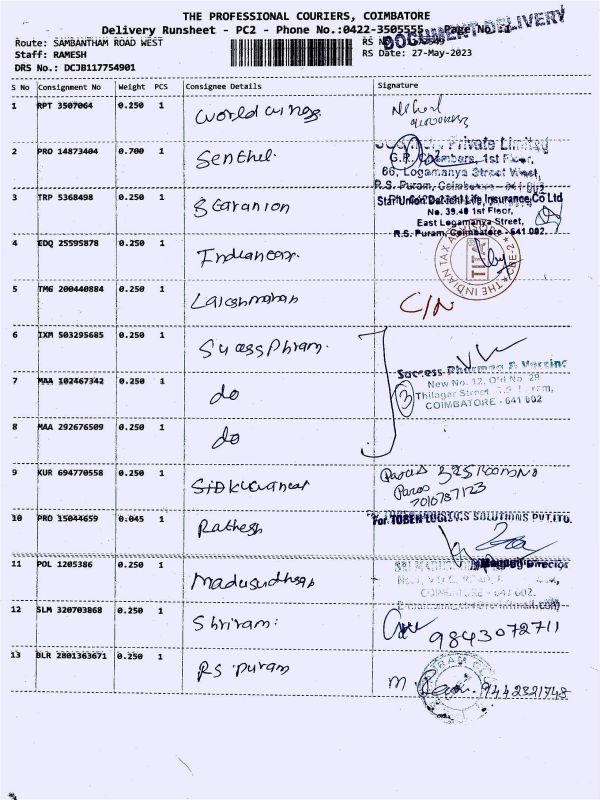 THE PROFESSIONAL COURIERS, COIMBATORE
Delivery Runsheet - PC2 - Phone No.:0422-3505555 Page No.:1
DOCUMENT DELIVERY
Route: SAMBANTHAM ROAD WEST RS No
Staff: RAMESH RS Date: 27-May-2023
DRS No.: DCJB117754901
S No Consignment No Weight PCS Consignee Details Signature
1 RPT 3507064 0.250 1 World wings
2 PRO 14873404 0.700 1 Senthil
Private Limited
G.R. Chambers, 1st Floor,
66, Logamanya Street West,
R.S. Puram, Coimbatore - 641 002
3 TRP 5368498 0.250 1
Star Union Dai-ichi Life Insurance Co Ltd
No. 39.40 1st Floor,
East Logamanya Street,
R.S. Puram, Coimbatore - 641 002.
4 EDQ 25595878 0.250 1
THE INDIAN TAX
TITA
CBE-2
5 TMG 200440884 0.250 1 Lakshmanan C/N
6 IXM 503295685 0.250 1 Sucess Phram.
Success Pharma & Vaccine
New No. 12, Old No. 29
Thilagar Street,
COIMBATORE - 641 002
7 MAA 102467342 0.250 1 do 3
8 MAA 292676509 0.250 1 do
9 KUR 694770558 0.250 1
7010787123
10 PRO 15044659 0.045 1 Rathesh
For TOBEN LOGISTICS SOLUTIONS PVT.LTD.
Managing Director
11 POL 1205386 0.250 1 Madusudhsan
COIMBATORE - 641 002.
12 SLM 320703868 0.250 1 Shriram. 9843072711
13 BLR 2801363671 0.250 1 RS.puram M. 9442391748